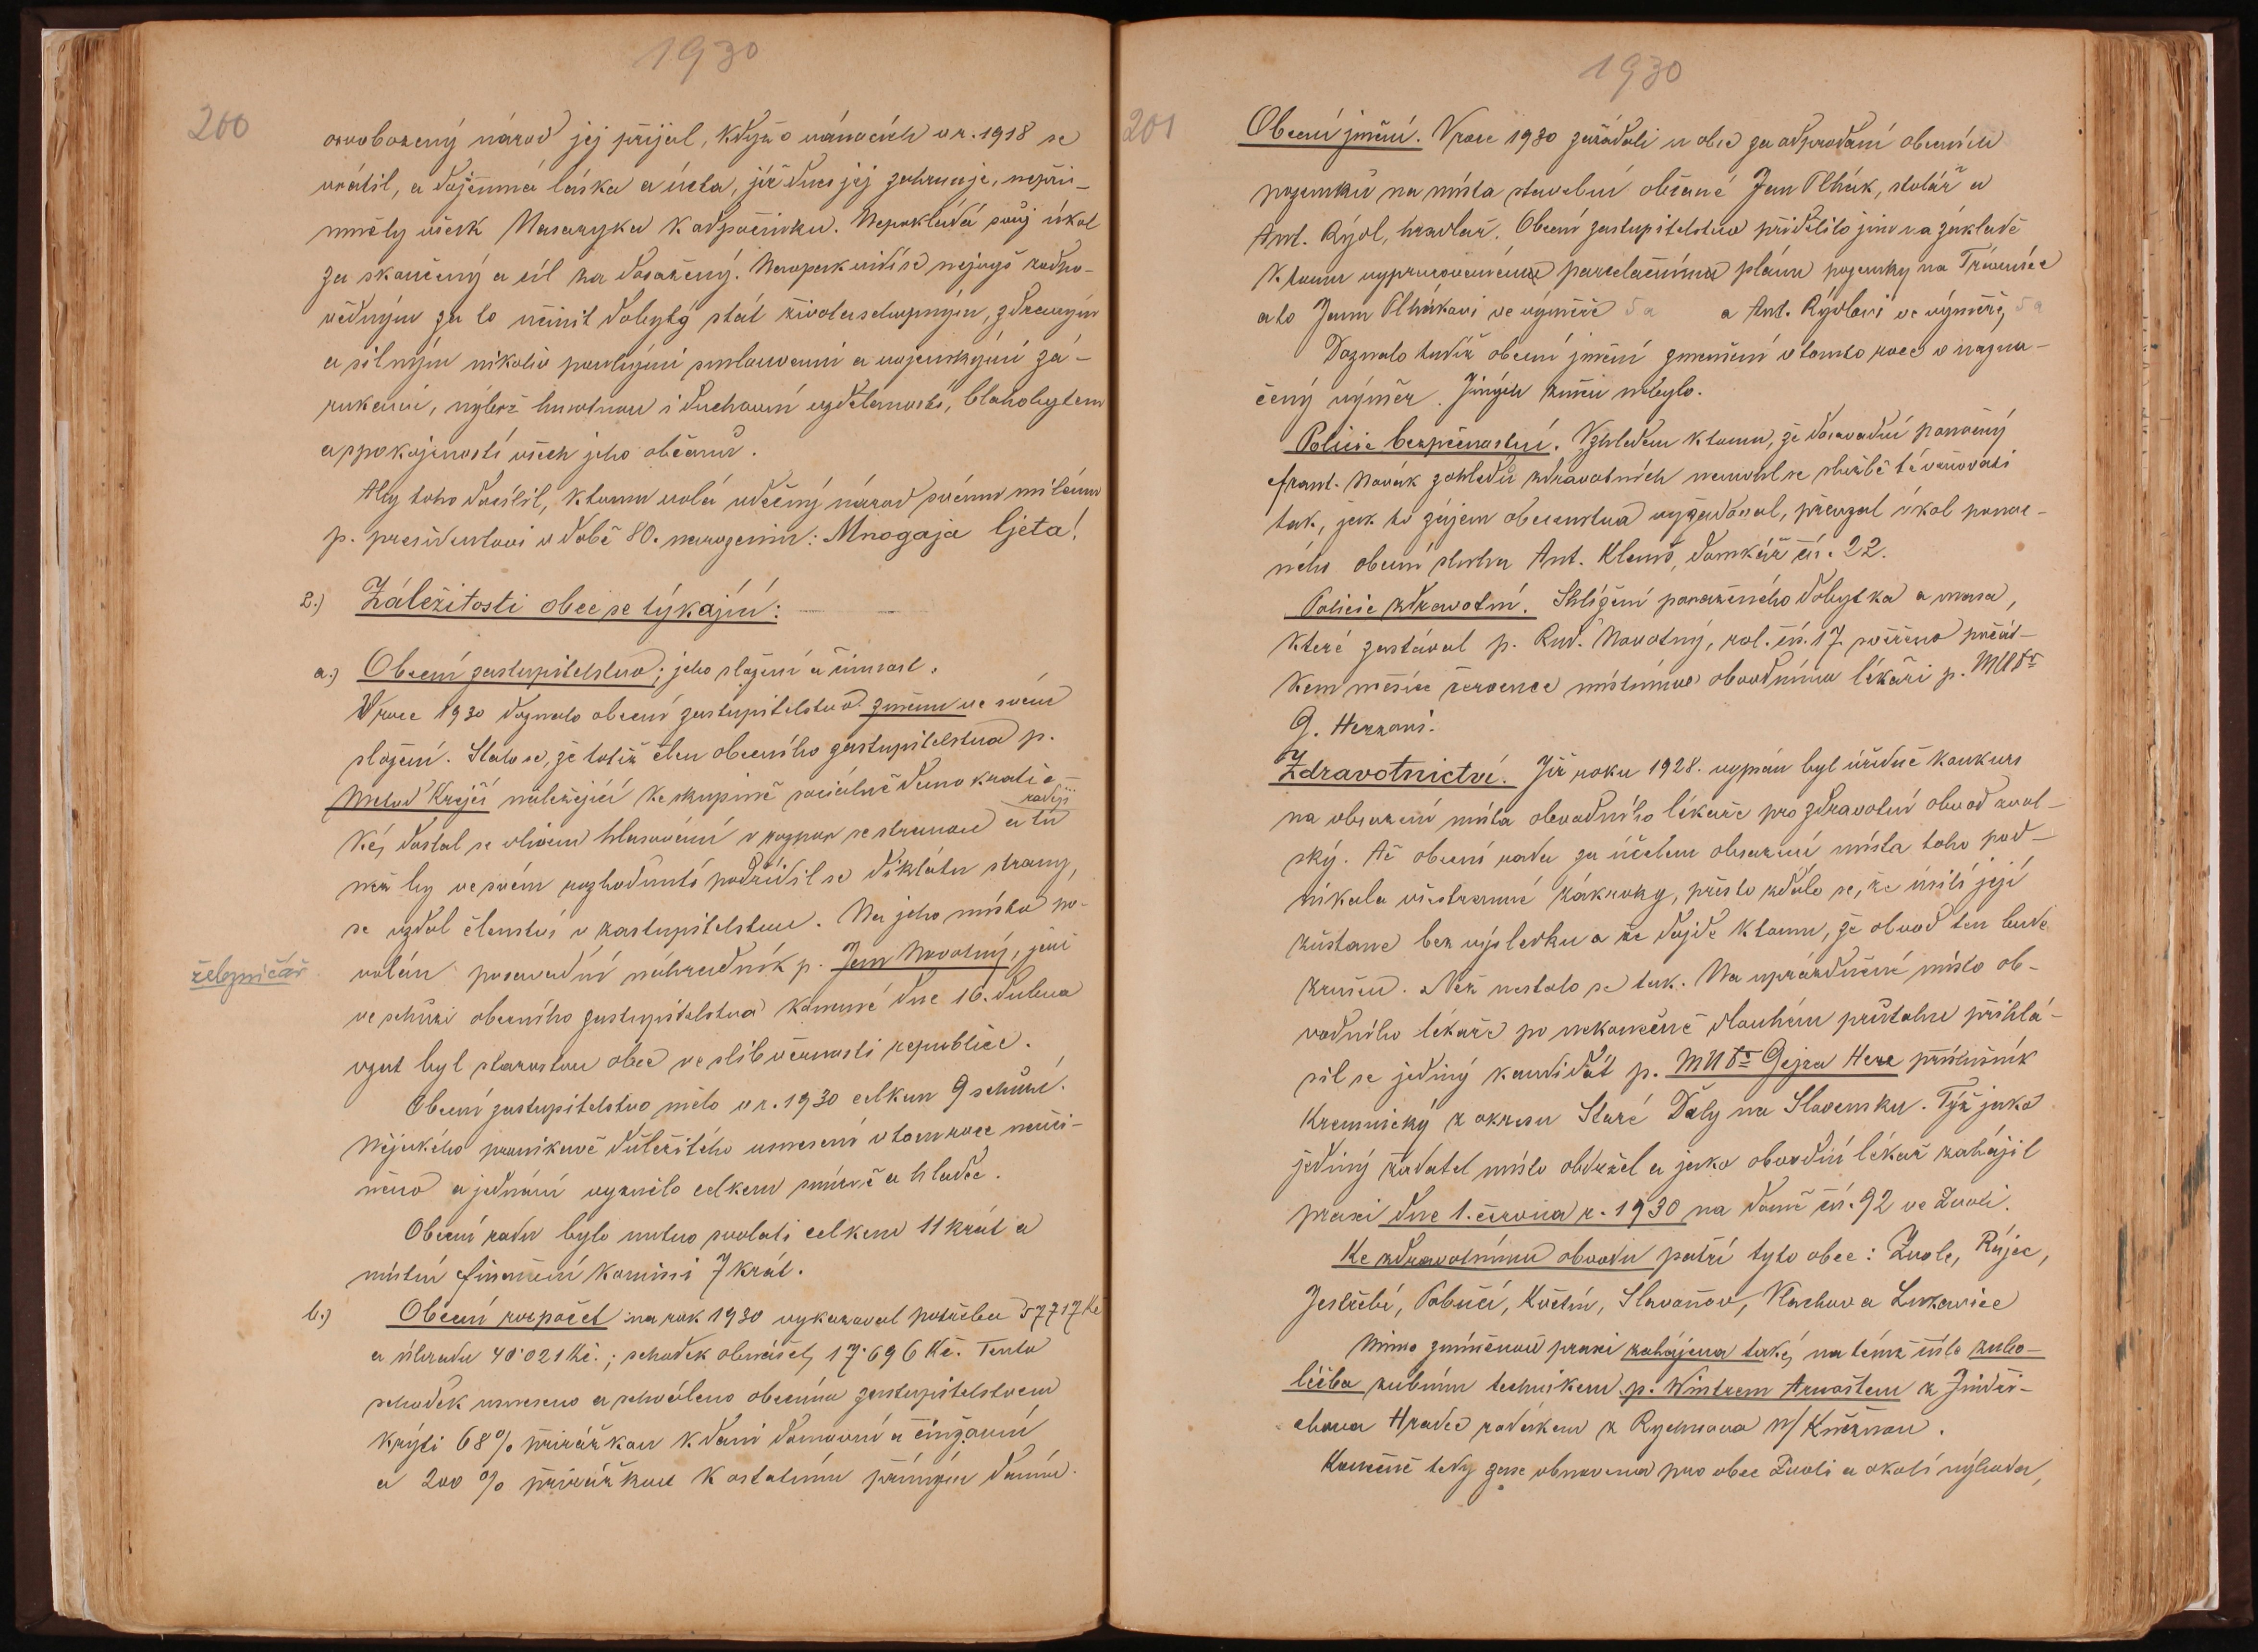 1930
200
osvobozený národ jej přijal, když o vánocích v r. 1918 se
vrátil, a dojemná láska a úcta, jíž dnes jej zahrnuje, nepři-
měly však Masaryka k odpočinku. Nepokládá svůj úkol
za skončený a cíl za dosažený. Naopak vidí se nejvýš zodpo-
vědným za to učinit dobytý stát životaschopným, zdravým
a silným nikoliv pouhými smlouvami a vojenskými zá-
rukami, nýbrž hmotnou i duchovní vzdělaností, blahobytem
a spokojeností všech jeho občanů.
Aby toho docílil, k tomu volá vděčný národ svému milému
p. presidentovi v době 80. narozenin: Mnogaja ljeta!
2.) Záležitosti obce se týkající:
a.) Obecní zastupitelstvo; jeho složení a činnost.
V roce 1930 doznalo obecní zastupitelstvo změnu ve svém
složení. Stalo se, že totiž člen obecního zastupitelstva p.
Metod Krejčí náležející ke skupině sociálně demokratic-
ké, dostal se vlivem hlasování v rozpor se stranou a tu raději
než by ve svém rozhodnutí podřídil se diktátu strany,
se vzdal členství v zastupitelstvu. Na jeho místo po-
železničář
volán posavadní náhradník p. Jan Novotný, jenž
ve schůzi obecního zastupitelstva konané dne 16. dubna
vzat byl starostou obce ve slib věrnosti republice.
Obecní zastupitelstvo mělo v r. 1930 celkem 9 schůzí.
Nějakého pronikavě důležitého usnesení v tom roce neuči-
něno a jednání vyznělo celkem smírně a hladce.
Obecní radu bylo nutno svolati celkem 11 krát a
místní finanční komisi 7 krát.
b.) Obecní rozpočet na rok 1930 vykazoval potřebu 57717 Kč
a úhradu 40·021 Kč.; schodek obnášel, 17·696 Kč. Tento
schodek usneseno a schváleno obecním zastupitelstvem
krýti 68% přirážkou k dani domovní a činžovní
a 200% přirážkou k ostatním přímým daním.
1930
201
Obecní jmění. V roce 1930 zažádali u obce za odprodání obecních
pozemků na místa stavební občané Jan Plhák, stolář a
Ant. Rýdl, hradlař. Obecní zastupitelstvo přidělilo jim na základě
k tomu vypracovanému parcelačnímu plánu pozemky na Trávníce
a to Janu Plhákovi ve výměře 5a a Ant. Rýdlovi ve výměře, 5a
Doznalo tudíž obecní jmění zmenšení v tomto roce o nazna-
čený výměr. Jiných změn nebylo.
Policie bezpečnostní. Vzhledem k tomu, že dosavadní ponocný
Frant. Novák z ohledů zdravotních nemohl se službě té věnovati
tak, jak to zájem obecenstva vyžadoval, převzal úkol ponoc-
ného obecní sluha Ant. Klemš, domkář čís. 22.
Policie zdravotní. Shlížení poraženého dobytka a masa,
které zastával p. Rud. Novotný, rol. čís. 17 svěřeno počát-
kem měsíce července místnímu obvodnímu lékaři p. MUDr
G. Herzovi.
Zdravotnictví. Již roku 1928. vypsán byl úředně konkurs
na obsazení místa obvodního lékaře pro zdravotní obvod zvol-
ský. Ač obecní rada za účelem obsazení místa toho pod-
nikala všestranné zákroky, přesto zdálo se, že úsilí její
zůstane bez výsledku a že dojde k tomu, že obvod ten bude
zrušen. Než nestalo se tak. Na uprázdněné místo ob-
vodního lékaře po nekonečně dlouhém průtahu přihlá-
sil se jediný kandidát p. MUDr Gejza Herz příslušník
Kremnický z okresu Staré Ďaly na Slovensku. Týž jako
jediný žadatel místo obdržel a jako obvodní lékař zahájil
praxi dne 1. června r. 1930 na domě čís. 92 ve Zvoli.
Ke zdravotnímu obvodu patří tyto obce: Zvole, Rájec,
Jestřebí, Pobučí, Kostín, Slavoňov, Vlachov a Lukavice
Mimo zmíněnou praxi zahájena také, na témž čísle zubo-
léčba zubním technikem p. Wintrem Arnoštem z Jindři-
chova Hradce rodákem z Rychnova n/ Kněžnou.
Konečně tedy zase obnovena pro obec Zvoli a okolí výhoda,